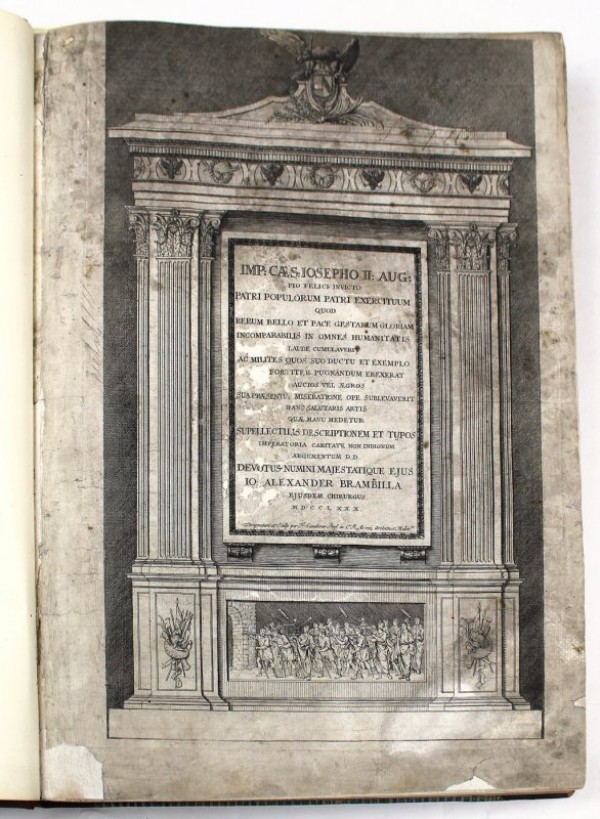 IMP: CÆS: IOSEPHO II: AUG:
PIO FELICI INVICTO
PATRI POPULORUM PATRI EXERCITUUM
QUOD
RERUM BELLO ET PACE GESTARUM GLORIAM
INCOMPARABILIS IN OMNES HUMANITATIS
LAUDE CUMULAVERIT
AC MILITES QUOS SUO DUCTU ET EXEMPLO
FORTITER PUGNANDUM EREXERAT
AUCIOS VEL ÆGROS
SUA PRÆSENTI, MISERATIONE OPE SUBLEVAVERIT
HANC SALUTARIS ARTIS
QUÆ MANU MEDETUR
SUPELLECTILIS DESCRIPTIONEM ET TYPOS
IMPERATORIA CARITATE NON INDIGNUM
ARGUMENTUM D.D.
DEVOTUS NUMINI MAJESTATIQUE EJUS
IO ALEXANDER BRAMBILLA
EJUSDEM CHIRURGUS
MDCCLXXX